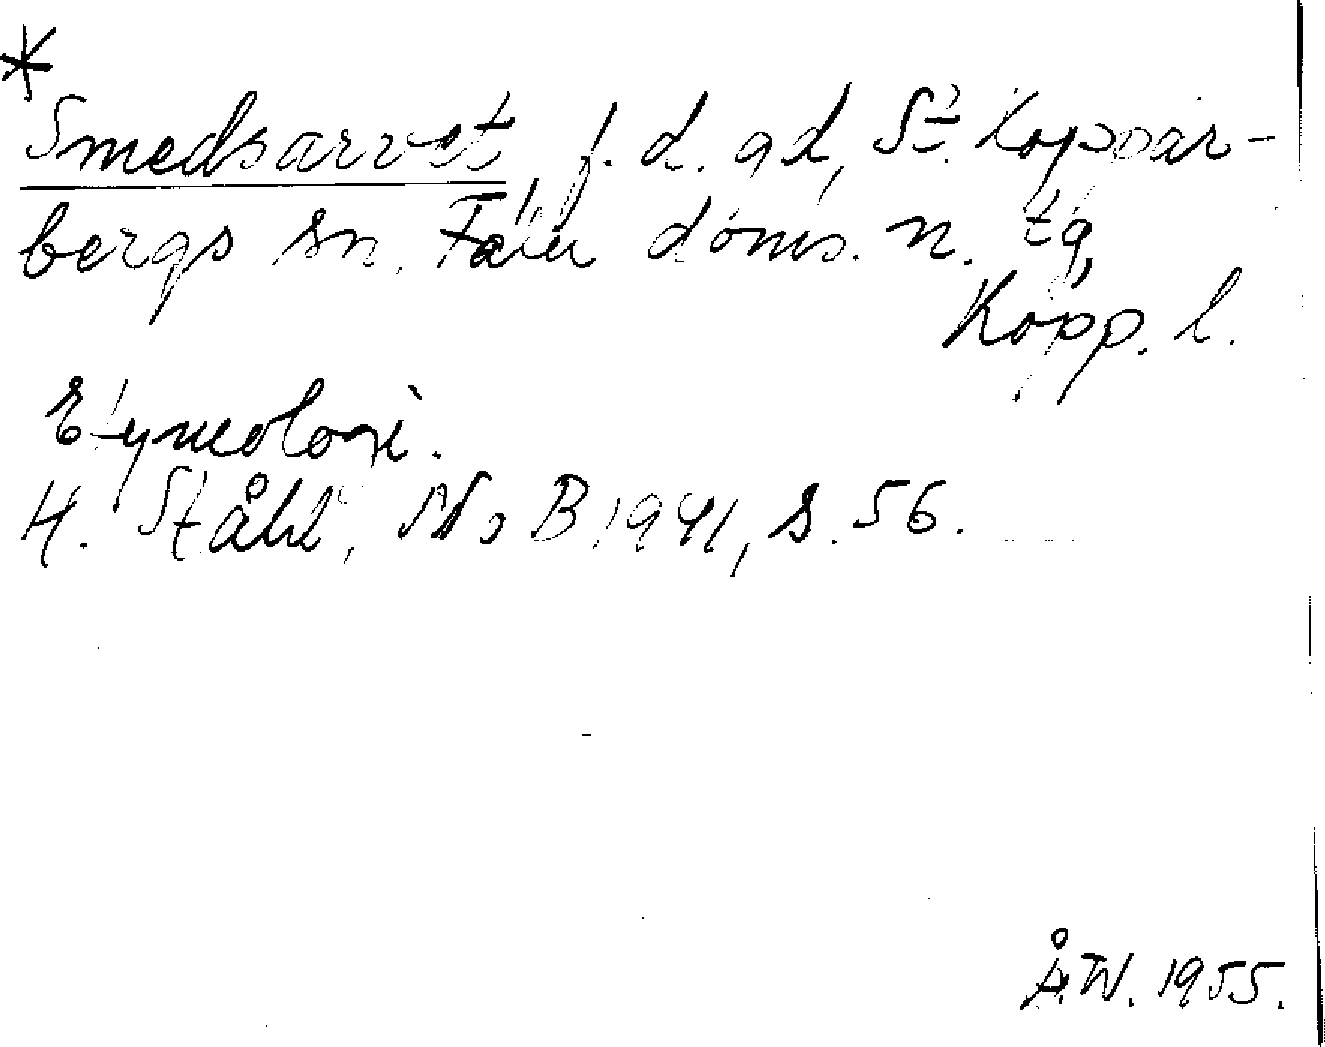 *
Smedsarvet, f. d. gd, St. Koppar-
bergs sn. Falu doms. n. tg,
Kopp. l.
Etymologi.
H. Ståhl, NoB 1941, s. 56.
Å.W. 1955.